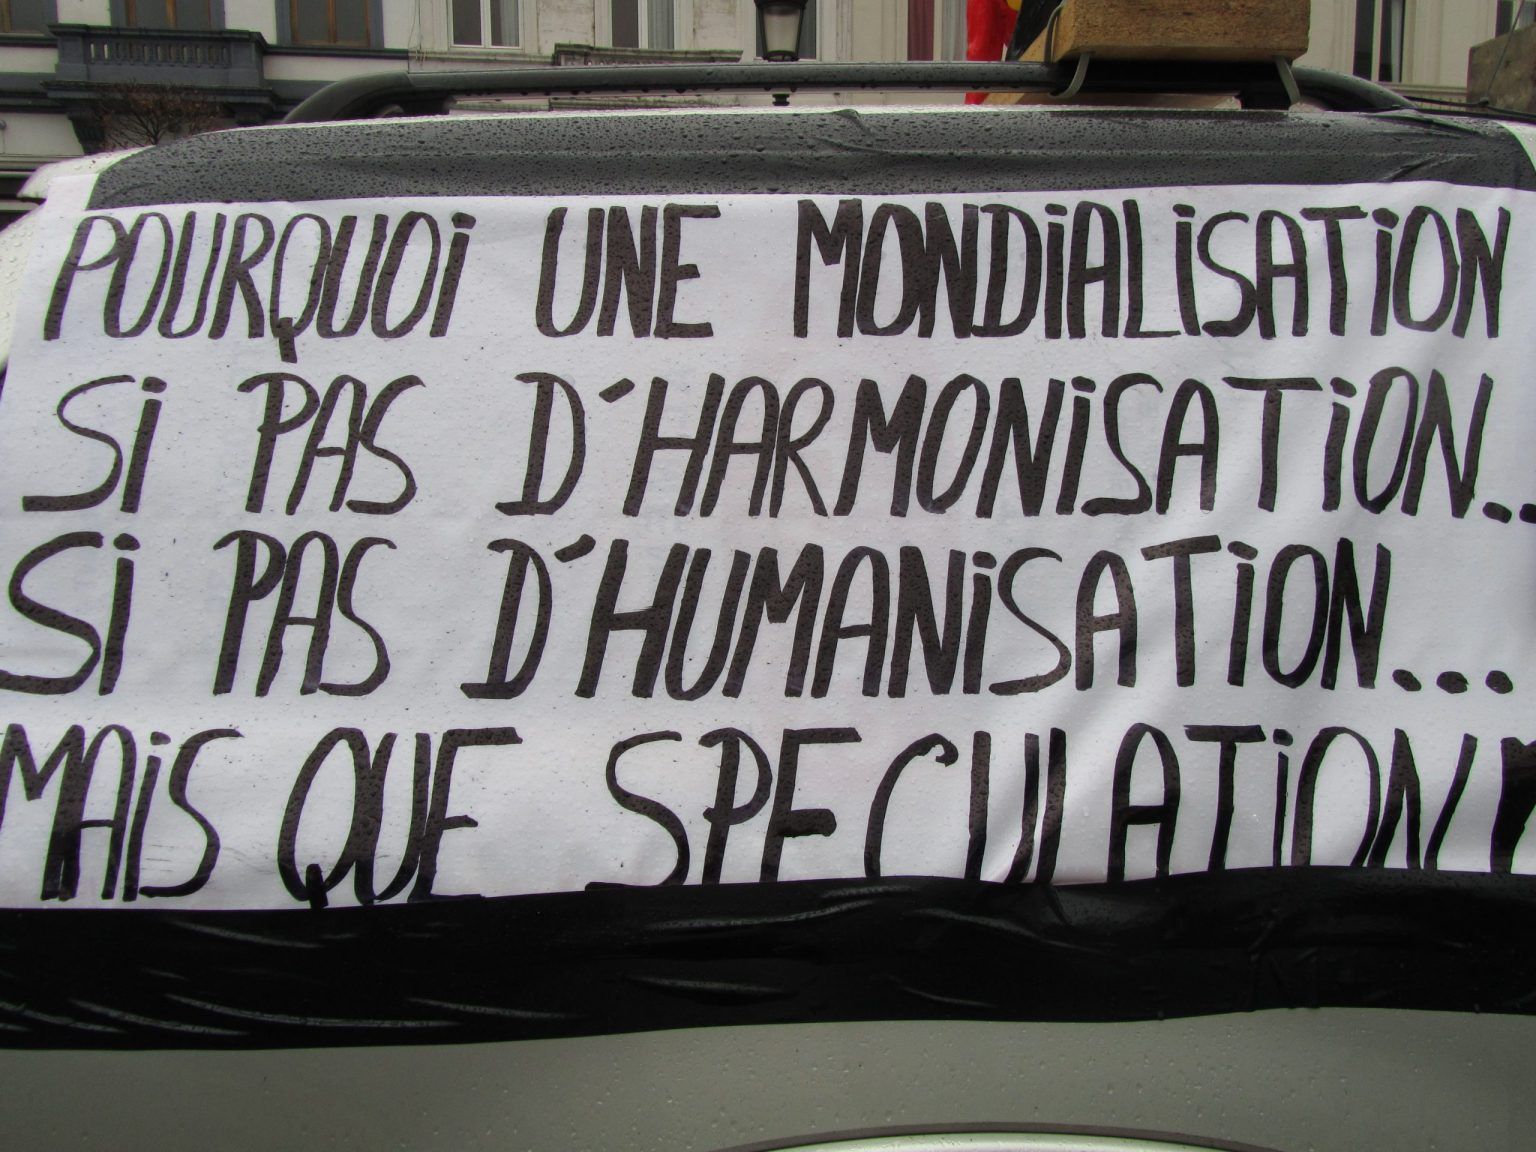 POURQUOi UNE MONDiALiSATiON
Si PAS D'HARMONiSATiON..
Si PAS D'HUMANiSATiON...
MAiS QUE SPECULATION!